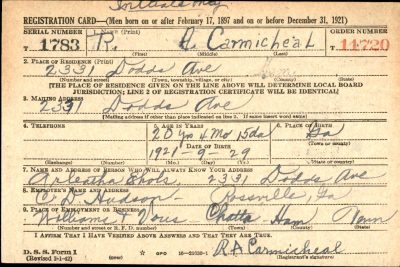 Initials only
REGISTRATION CARD—(Men born on or after February 17, 1897 and on or before December 31, 1921)
SERIAL NUMBER 1. NAME (Print) ORDER NUMBER
T 1783 R. A. Carmicheal 11720
(First) (Middle) (Last)
2. PLACE OF RESIDENCE (Print)
2331 Dodds Ave
(Number and street) (Town, township, village, or city) (County) (State)
[THE PLACE OF RESIDENCE GIVEN ON THE LINE ABOVE WILL DETERMINE LOCAL BOARD
JURISDICTION; LINE 2 OF REGISTRATION CERTIFICATE WILL BE IDENTICAL]
3. MAILING ADDRESS
2331 Dodds Ave
[Mailing address if other than place indicated on line 2. If same insert word same]
4. TELEPHONE 5. AGE IN YEARS 6. PLACE OF BIRTH
20 yrs 4 Mo 15da Ga
DATE OF BIRTH (Town or county)
1921-9-29
(Exchange) (Number) (Mo.) (Day) (Yr.) (State or country)
7. NAME AND ADDRESS OF PERSON WHO WILL ALWAYS KNOW YOUR ADDRESS
2331 Dodds Ave
8. EMPLOYER'S NAME AND ADDRESS
C D Hudson- Rossville, Ga
9. PLACE OF EMPLOYMENT OR BUSINESS
Williams & Chatta Ham Tenn
(Number and street or R. F. D. number) (Town) (County) (State)
I AFFIRM THAT I HAVE VERIFIED ABOVE ANSWERS AND THAT THEY ARE TRUE.
D. S. S. Form 1
(Revised 2-1-42) GPO 16—21630-1 R A Carmicheal
(Registrant's signature)